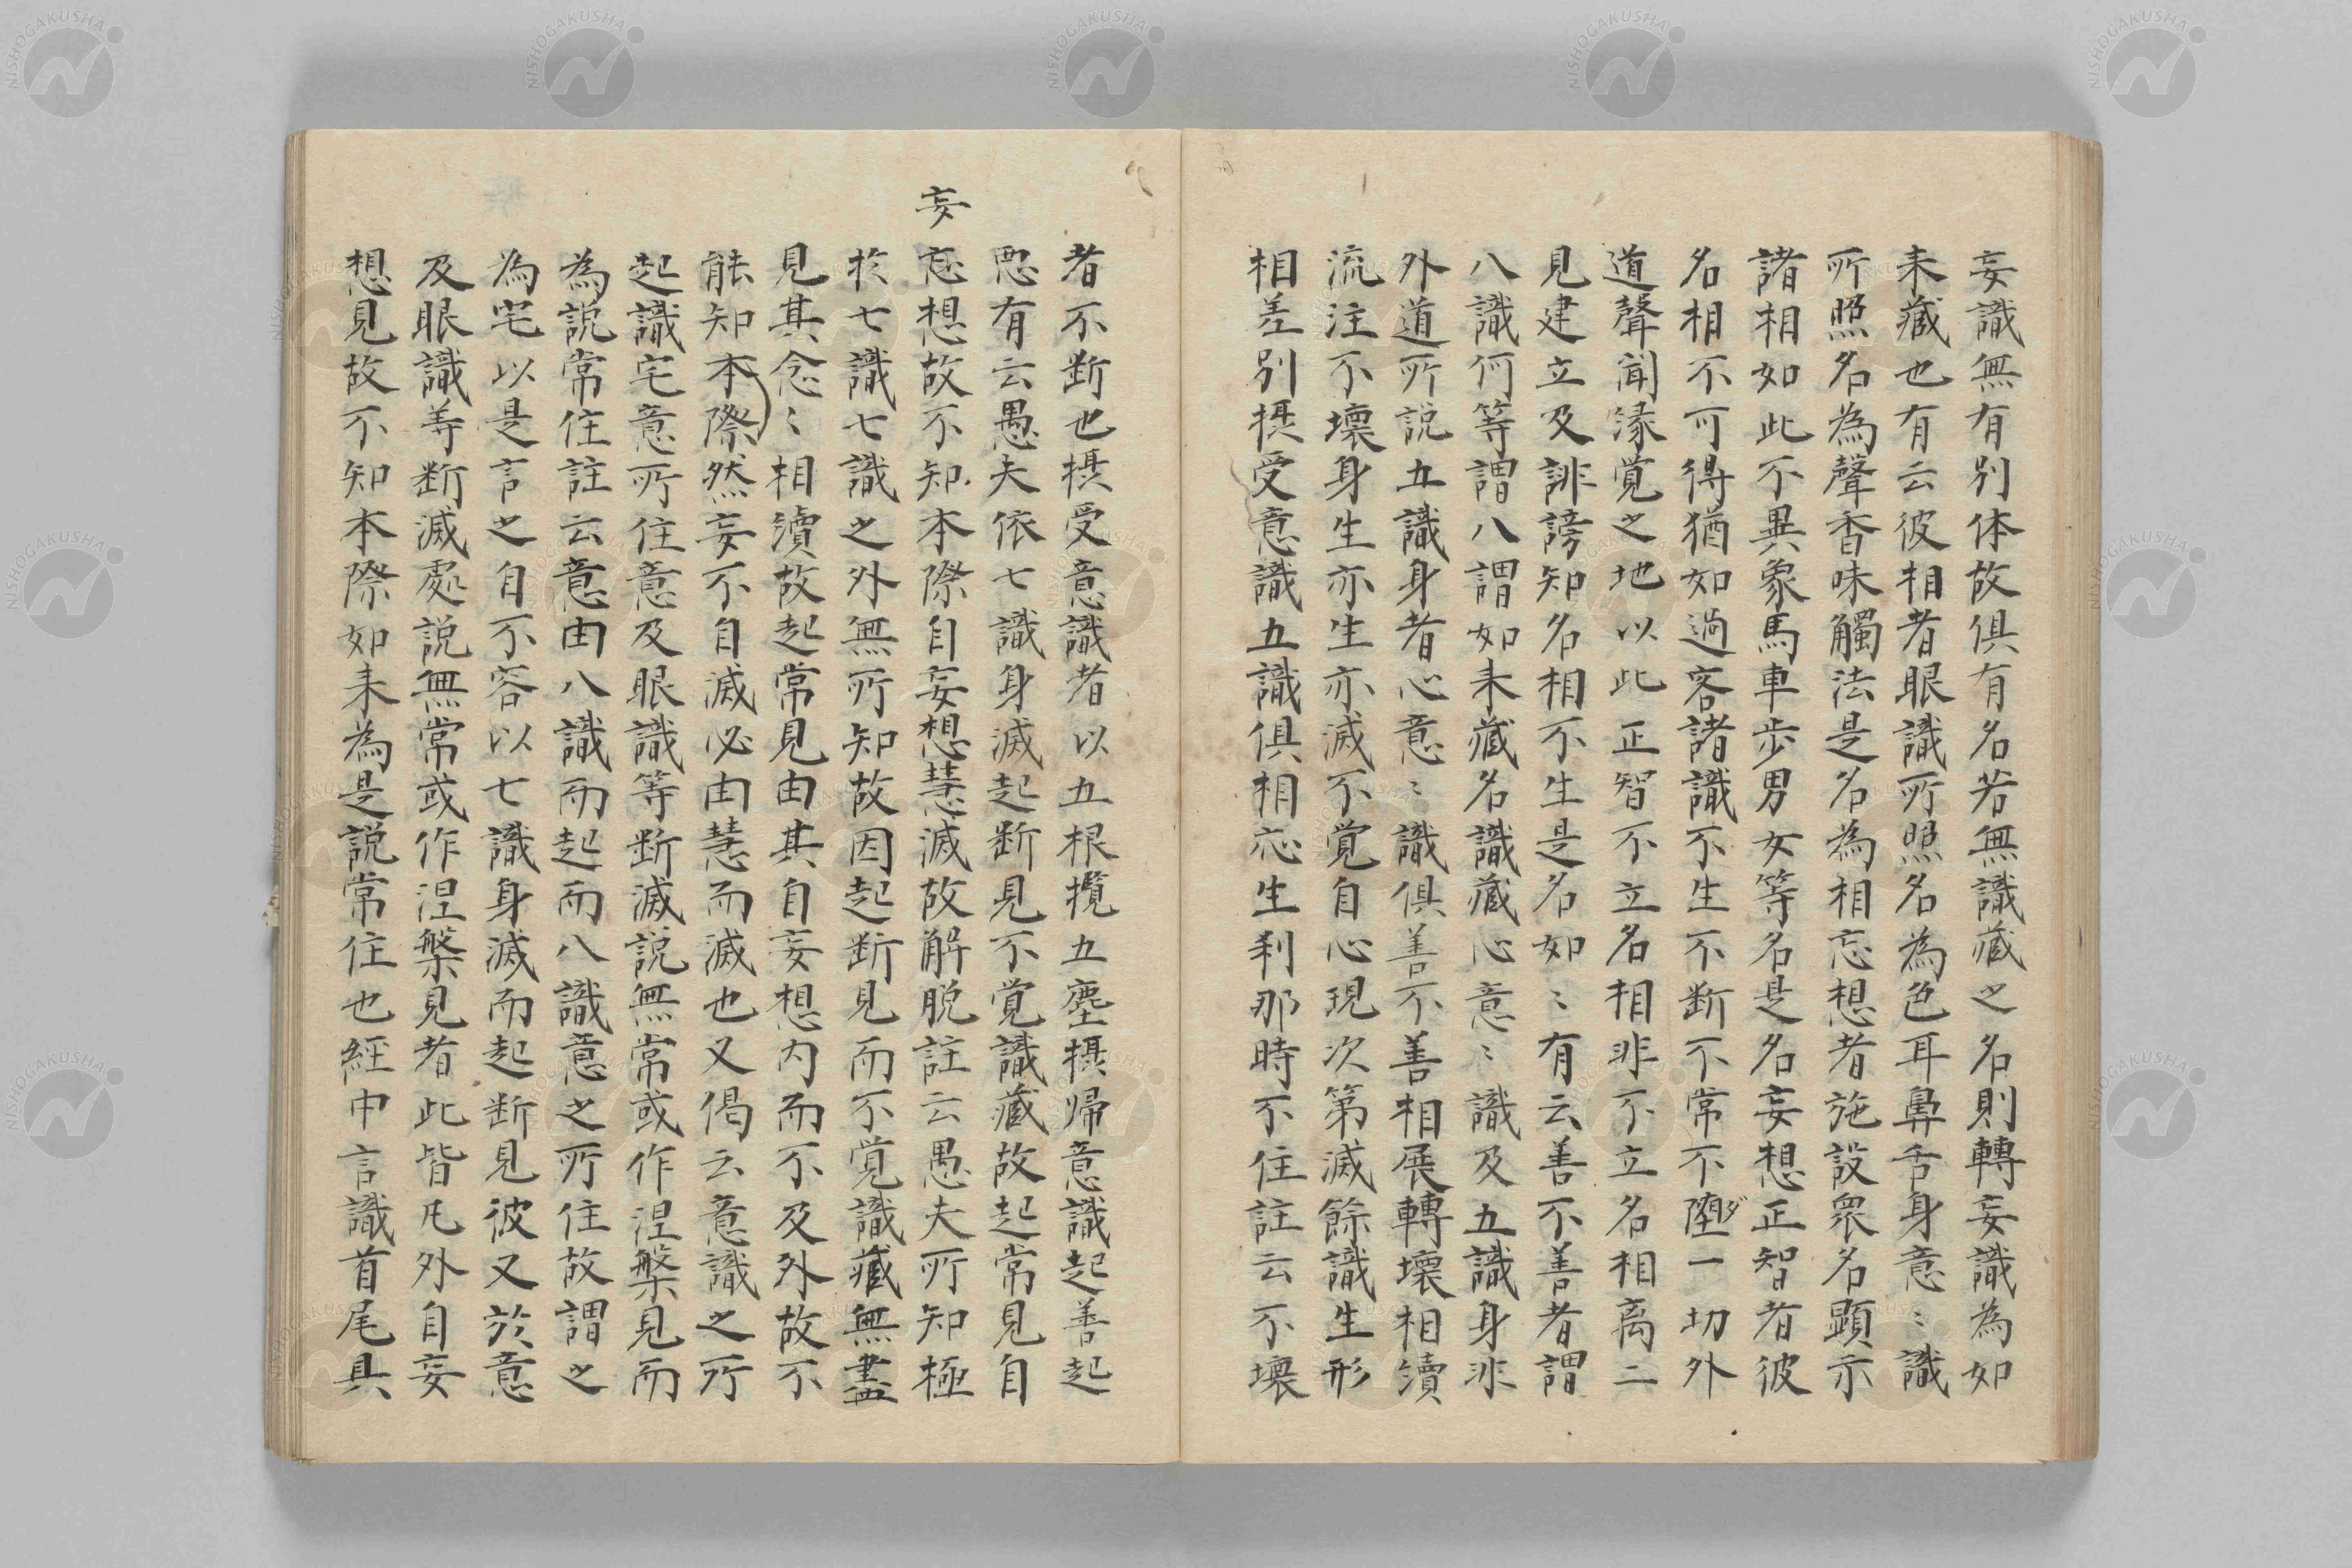 妄識無有別体故俱有名若無識藏之名則轉妄識為如
来藏也有云彼相者眼識所照名為色耳鼻舌身意〻識
所照名為聲香味觸法是名為相忘想者施設衆名顕示
諸相如此不異象馬車歩男女等名是名妄想正智者彼
名相不可得猶如過客諸識不生不断不常不堕一切外
道聲聞縁覚之地以此正智不立名相非不立名相离二
見建立及誹謗知名相不生是名如〻有云善不善者謂
八識何等謂八謂如来藏名識藏心意〻識及五識身非
外道所説五識身者心意〻識俱善不善相展轉壊相續
流注不壊身生亦生亦滅不覚自心現次第滅餘識生形
相差別摂受意識五識俱相応生刹那時不住註云不壊
者不断也摂受意識者以五根攬五塵摂帰意識起善起
悪有云愚夫依七識身滅起断見不覚識藏故起常見自
妄
忘想故不知本際自妄想慧滅故解脱註云愚夫所知極
於七識七識之外無所知故因起断見而不覚識藏無盡
見其念〻相續故起常見由其自妄想内而不及外故不
能知本際然妄不自滅必由慧而滅也又偈云意識之所
起識宅意所住意及眼識等断滅説無常或作涅槃見而
為説常住註云意由八識而起而八識意之所住故謂之
為宅以是言之自不容以七識身滅而起断見彼又於意
及眼識等断滅處説無常或作涅槃見者此皆凡外自妄
想見故不知本際如来為是説常住也経中言識首尾具
NISHOGAKUSHA